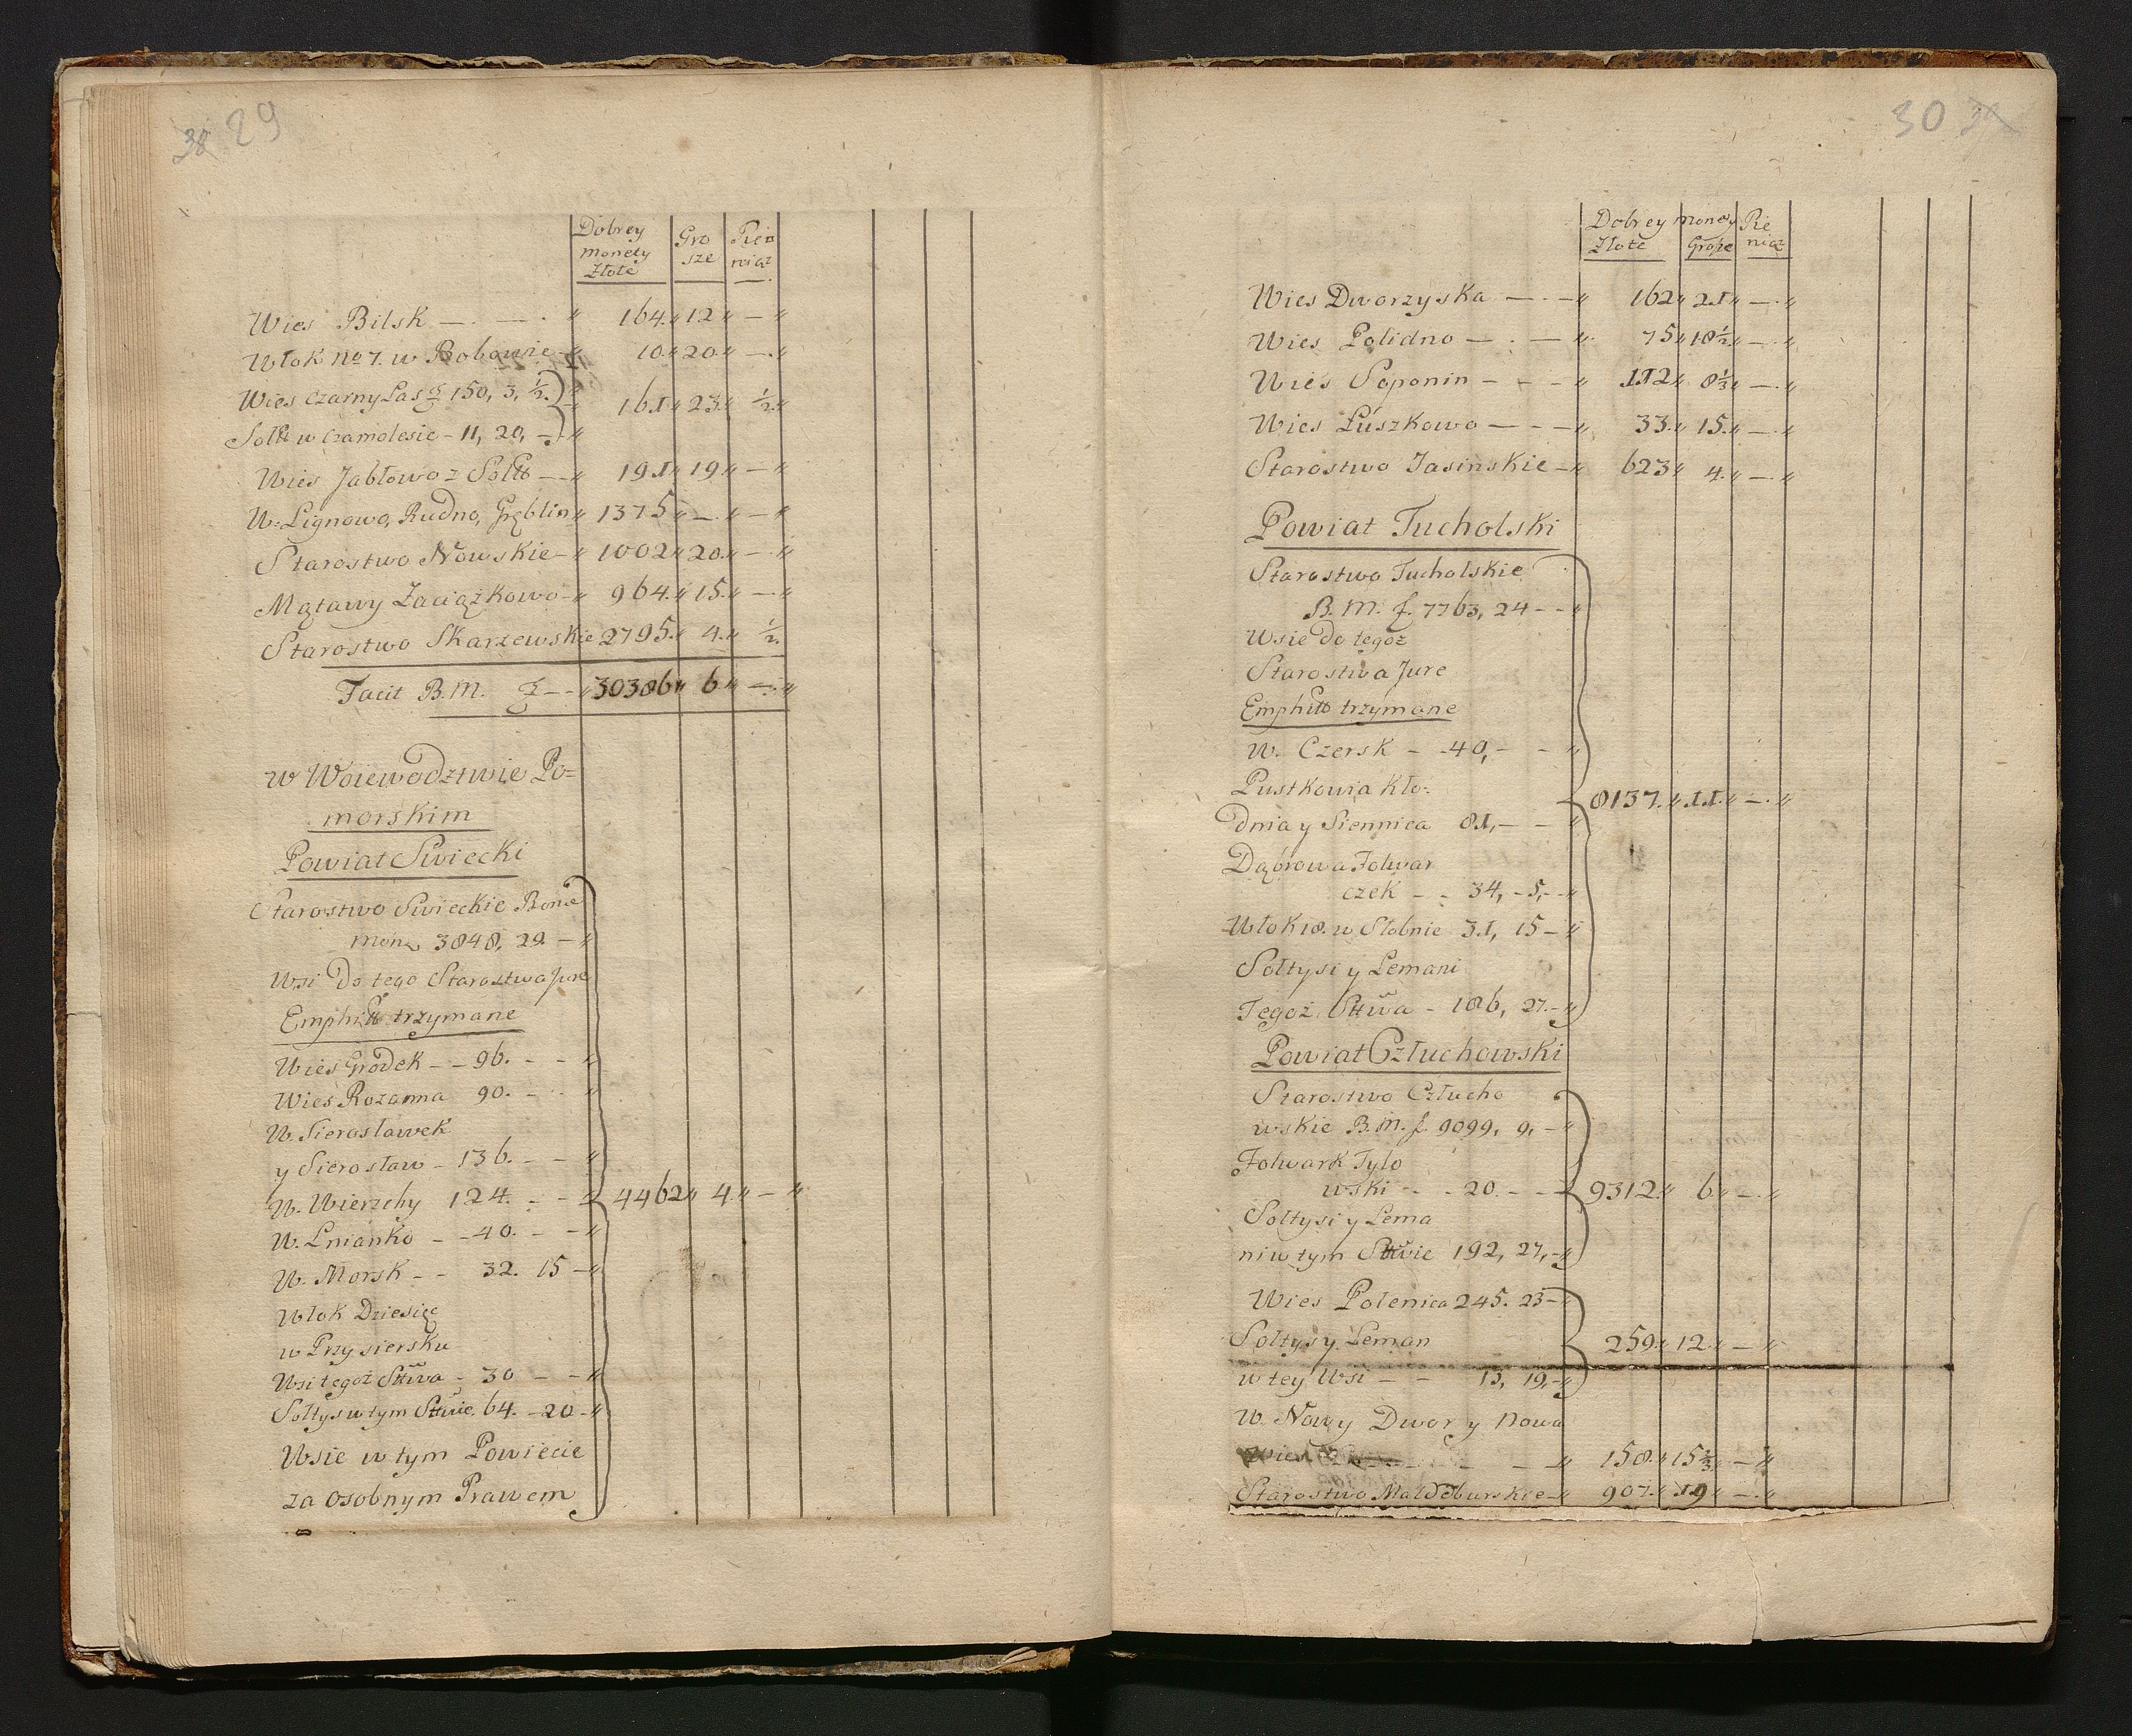 38 29
Dobrey Gro Pien
monety sze niąz
Złote
Wies Bilsk — . — . " 164." 12 " — "
Włok No 7. w Bobowie " 10." 20." — . "
Wies Czarny Las f 150, 3, ½.
161 " 23 " ½. "
Solt w Czarnolesie - 11, 20, - "
Wies Jabłowo z Soltt — " 191 " 19 " — "
W. Lignowo, Rudno, Gręblin " 1375 " — . " — "
Starostwo Nowskie - " 1002 " 20." — . "
Mątawy Zaciążkowo - " 964." 15." — . "
Starostwo Skarzewskie 2795." 4." ½.
Facit B. M. f - - " 30386 " 6 " — . "
w Woiewodztwie Po=
morskim
Powiat Swiecki
Starostwo Swieckie Bonæ
mon. 3848, 29. — "
Wsi do tego Starostwa Jure
Emphitt trzymane
Wies Grodek - - 96. - - "
Wies Rozanna 90. - . "
W. Sierosławek
y Sierosław - 136. - - "
W. Wierzchy 124. - - " 4462 " 4." — "
W. Lnianko - - 40. - - "
W. Morsk - - 32. 15 - "
Włok Dziesięc
w Przysiersku
Wsi tegoż Sttwa - 30 - - "
Sołtys w tym Sttwie. 64. - 20 - "
Wsie w tym Powiecie
za osobnym Prawem
30
Dobrey monety Pie
Złote Grosze niąz
Wies Dworzyska — . — " 162 " 21 " — . "
Wies Polidno — . — " 75 " 18½ " — . "
Wies Poponin - - - " 112 " 8⅓ " — . "
Wies Łuszkowo — - — " 33." 15." — . "
Starostwo Jasinskie - " 623 " 4." — . "
Powiat Tucholski
Starostwo Tucholskie
B. M. f. 7763, 24 - - "
Wsie do tegoz
Starostwa Jure
Emphitt trzymane
W. Czersk - - 40, - - "
Pustkowia Kło-
8137." 11." — . "
dnia y Siennica 81, — - "
Dąbrowa Folwar
czek - - 34, - 5, - "
Włok 18. w Słobnie 31, 15 - "
Sołtysi y Lemani
Tegoż Sttwa - 186, 27. - "
Powiat Człuchowski
Starostwo Człucho
wskie B. M. f. 9099, 9, - "
Folwark Tylo
wski - - 20. - - " 9312." 6 " — . "
Sołtysi y Lema
ni w tym Sttwie 192, 27, - "
Wies Polenica 245. 23 - "
Sołtys y Leman 259." 12." — "
w tey Wsi - - 13, 19, - "
W. Nowy Dwor y Nowa
Wies - - " 158." 15⅔ " — "
Starostwo Maldeburskie - " 907." 19 " — . "